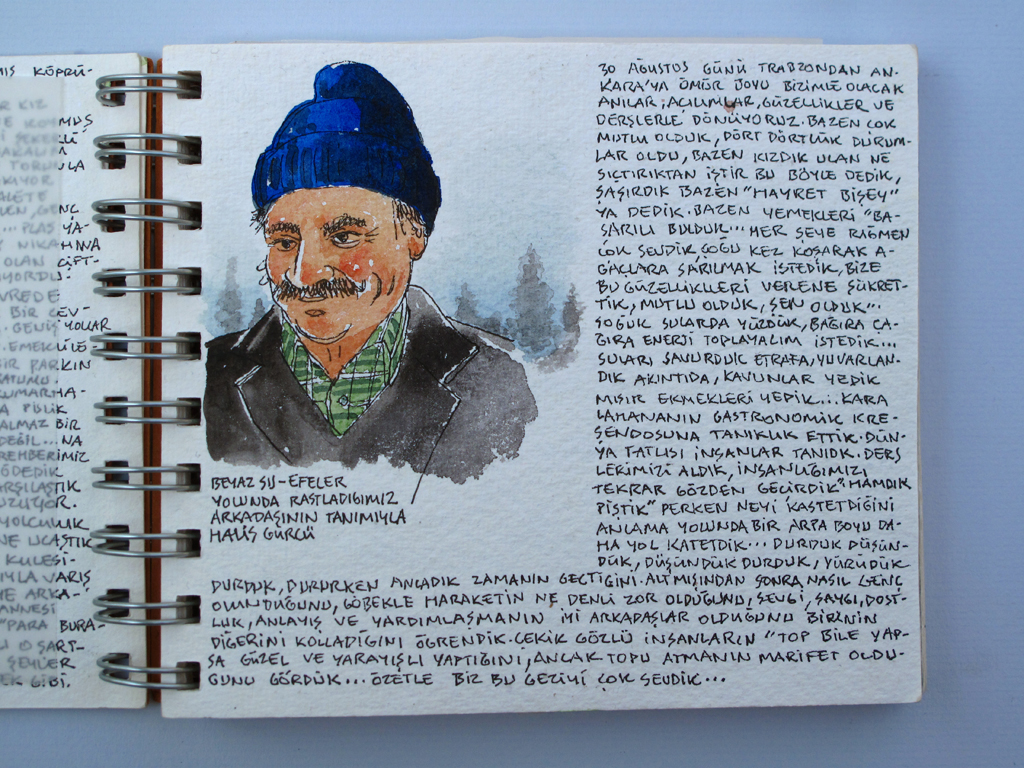 MIŞ KÖPRÜ-
R KIZ
VE KOYMUŞ
TORUNULA
KIYOR
LETE
EN, GENÇ
... PLAS YA-
NIKAHINA
OLAN ÇİFT-
IYORDU.
VREDE
BİR ÇEV-
. GENİŞ YOLLAR
. EMEKLİLE-
BİR PARKIN
A PİSLİK
ALMAZ BİR
DEĞİL...NA
REHBERİMİZ
ĞDEDİK
ARŞILAŞTIK
UZLIYOR.
YOLCULUK
NE UÇAŞTIK
KULESİ-
IYLA VARIŞ
VE ARKA-
ANNESİ
"PARA BURA-
U O ŞART-
ŞEYLER
EK GİBİ.
30 AĞUSTOS GÜNÜ TRABZONDAN AN-
KARA'YA ÖMÜR BOYU BİZİMLE OLACAK
ANILAR, AÇILIMLAR, GÜZELLİKLER VE
DERSLERLE DÖNÜYORUZ. BAZEN ÇOK
MUTLU OLDUK, DÖRT DÖRTLÜK DURUM-
LAR OLDU, BAZEN KIZDIK ULAN NE
SIÇTIRIKTAN İŞTİR BU BÖYLE DEDİK,
ŞAŞIRDIK BAZEN "HAYRET BİŞEY"
YA DEDİK. BAZEN YEMEKLERİ "BA-
ŞARILI BULDUK... HER ŞEYE RAĞMEN
ÇOK SEVDİK, ÇOĞU KEZ KOŞARAK A-
ĞAÇLARA SARILMAK İSTEDİK, BİZE
BU GÜZELLİKLERİ VERENE ŞÜKRET-
TİK, MUTLU OLDUK, ŞEN OLDUK...
SOĞUK SULARDA YÜZDÜK, BAĞIRA ÇA-
ĞIRA ENERJİ TOPLAYALIM İSTEDİK...
SULARI SAVURDUK ETRAFA, YUVARLAN-
DIK AKINTIDA, KAVUNLAR YEDİK
MISIR EKMEKLERİ YEDİK... KARA
LAHANANIN GASTRONOMİK KRE-
ŞENDOSUNA TANIKLIK ETTİK. DÜN-
YA TATLISI İNSANLAR TANIDIK. DERS
LERİMİZİ ALDIK, İNSANLIĞIMIZI
TEKRAR GÖZDEN GEÇİRDİK "HAMDIK
PİŞTİK" DERKEN NEYİ KASTETDİĞİNİ
ANLAMA YOLUNDA BİR ARPA BOYU DA-
HA YOL KATETDİK... DURDUK DÜŞÜN-
DÜK, DÜŞÜNDÜK DURDUK, YÜRÜDÜK
DURDUK, DURURKEN ANLADIK ZAMANIN GEÇTİĞİNİ. ALTMIŞINDAN SONRA NASIL GENÇ
OLUNDUĞUNU, GÖBEKLE HARAKETİN NE DENLİ ZOR OLDUĞUNU, SEVGİ, SAYGI, DOST-
LUK, ANLAYIŞ VE YARDIMLAŞMANIN İYİ ARKADAŞLAR OLDUĞUNU BİRİNİN
DİĞERİNİ KOLLADIĞINI ÖĞRENDİK. ÇEKİK GÖZLÜ İNSANLARIN "TOP BİLE YAP-
SA GÜZEL VE YARAYIŞLI YAPTIĞINI, ANCAK TOPU ATMANIN MARİFET OLDU-
ĞUNU GÖRDÜK... ÖZETLE BİZ BU GEZİYİ ÇOK SEVDİK...
BEYAZ SU-EFELER
YOLUNDA RASTLADIĞIMIZ
ARKADAŞININ TANIMIYLA
HALİS GÜRCÜ